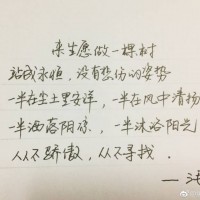 来生愿做一棵树
站成永恒，没有悲伤的姿势
一半在尘土里安详，一半在风中清扬
一半洒落阴凉，一半沐浴阳光
从不骄傲，从不寻找．